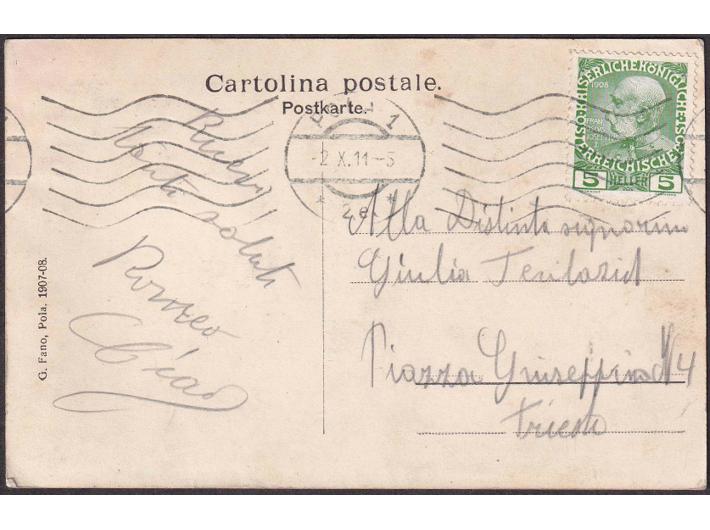 Cartolina postale.
Postkarte.
1
-2.X.11-5
* 2e. *
KAISERLICHEKÖNIGLICHE
1908
FRANZ
JOSEF I
ÖSTERREICHISCHE
5 HELLER 5
Ricevi
tanti saluti
Romeo
Ciao
Alla Distinta signorina
Giulia
Piazza Giuseppina N 4
Trieste
G. Fano, Pola. 1907-08.